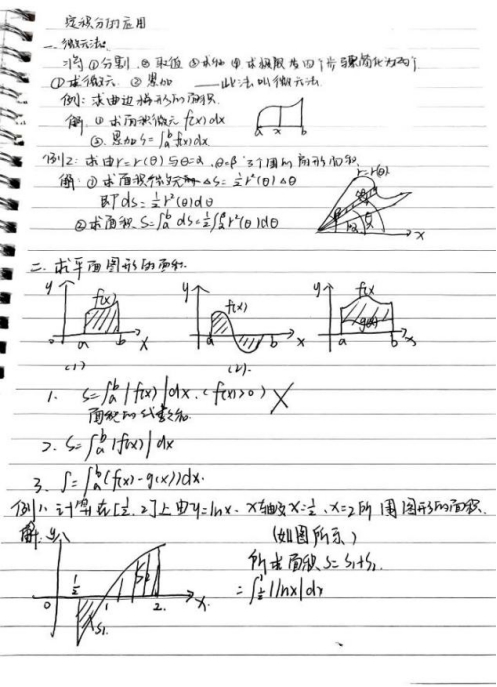 定积分的应用
一.微元法
①分割 ②取值 ③求和 ④求极限 为四个步骤简化为两个
①求微元. ②累加 —— 此法叫微元法
例: 求曲边梯形的面积.
解. ① 求面积微元 f(x)dx
②. 累加 S=∫ₐᵇ f(x)dx
a x b
例2: 求由 r=r(θ) 与 θ=α, θ=β 3个围的扇形面积.
解: ① 求面积微元 ΔS=½r²(θ)Δθ
即 ds=½r²(θ)dθ
② 求面积 S=∫ₐᵇ ds=½∫r²(θ)dθ
r=r(θ)
x
二. 求平面图形的面积.
y f(x) 0 a b x
y f(x) a b x
y f(x) g(x) a b x
(1) (2).
1. S=∫ₐᵇ|f(x)|dx. (f(x)>0) X
面积的代数和.
2. S=∫ₐᵇ|f(x)|dx
3. S=∫ₐᵇ(f(x)-g(x))dx.
例1. 计算在[½,2]上由y=lnx. x轴及x=½, x=2所围图形的面积.
解: (如图所示)
所求面积 S=S₁+S₂
=∫|lnx|dx
y ½ 0 1 2 x S₁ S₂